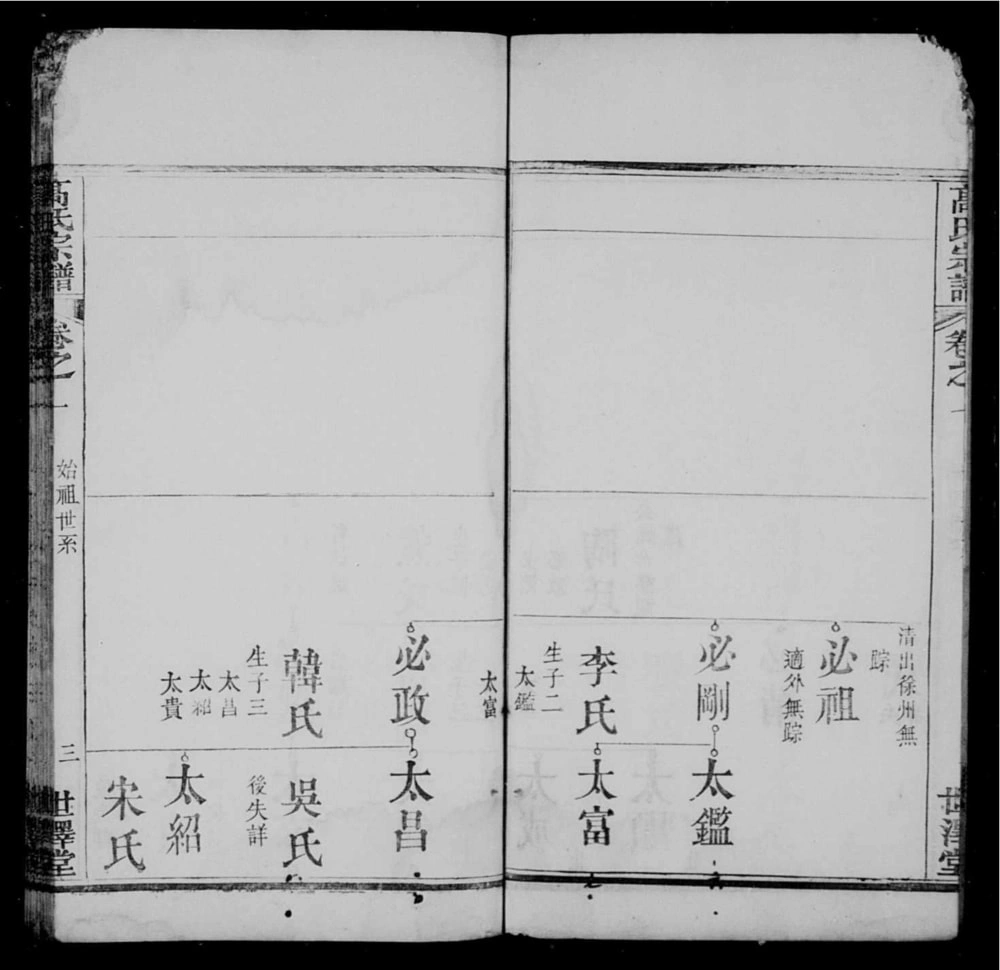 高氏宗譜
卷之一
世澤堂
清出徐州無
踪
必祖
適外無踪
必剛
李氏
生子二
太鑑
太富
太鑑
太富
必政
韓氏
生子三
太昌
太紹
太貴
太昌
吳氏
後失詳
太紹
宋氏
高氏宗譜
卷之一
始祖世系
三
世澤堂